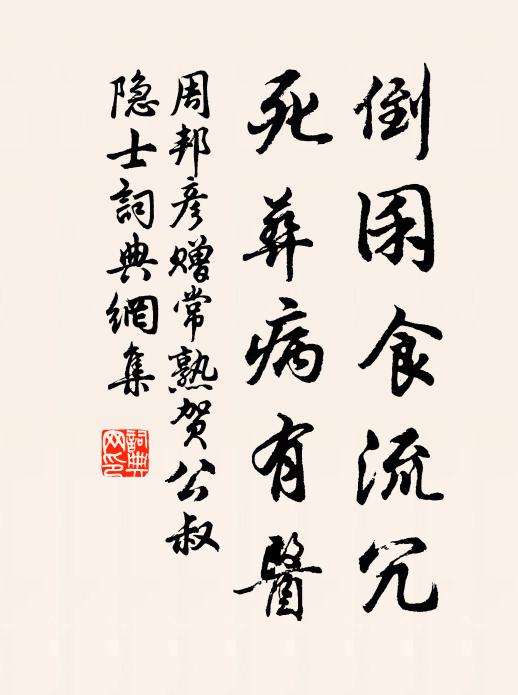 倒囷食流冗
死葬病有醫
周邦彦赠常熟贺公叔
隐士詞典網集
詞典网印